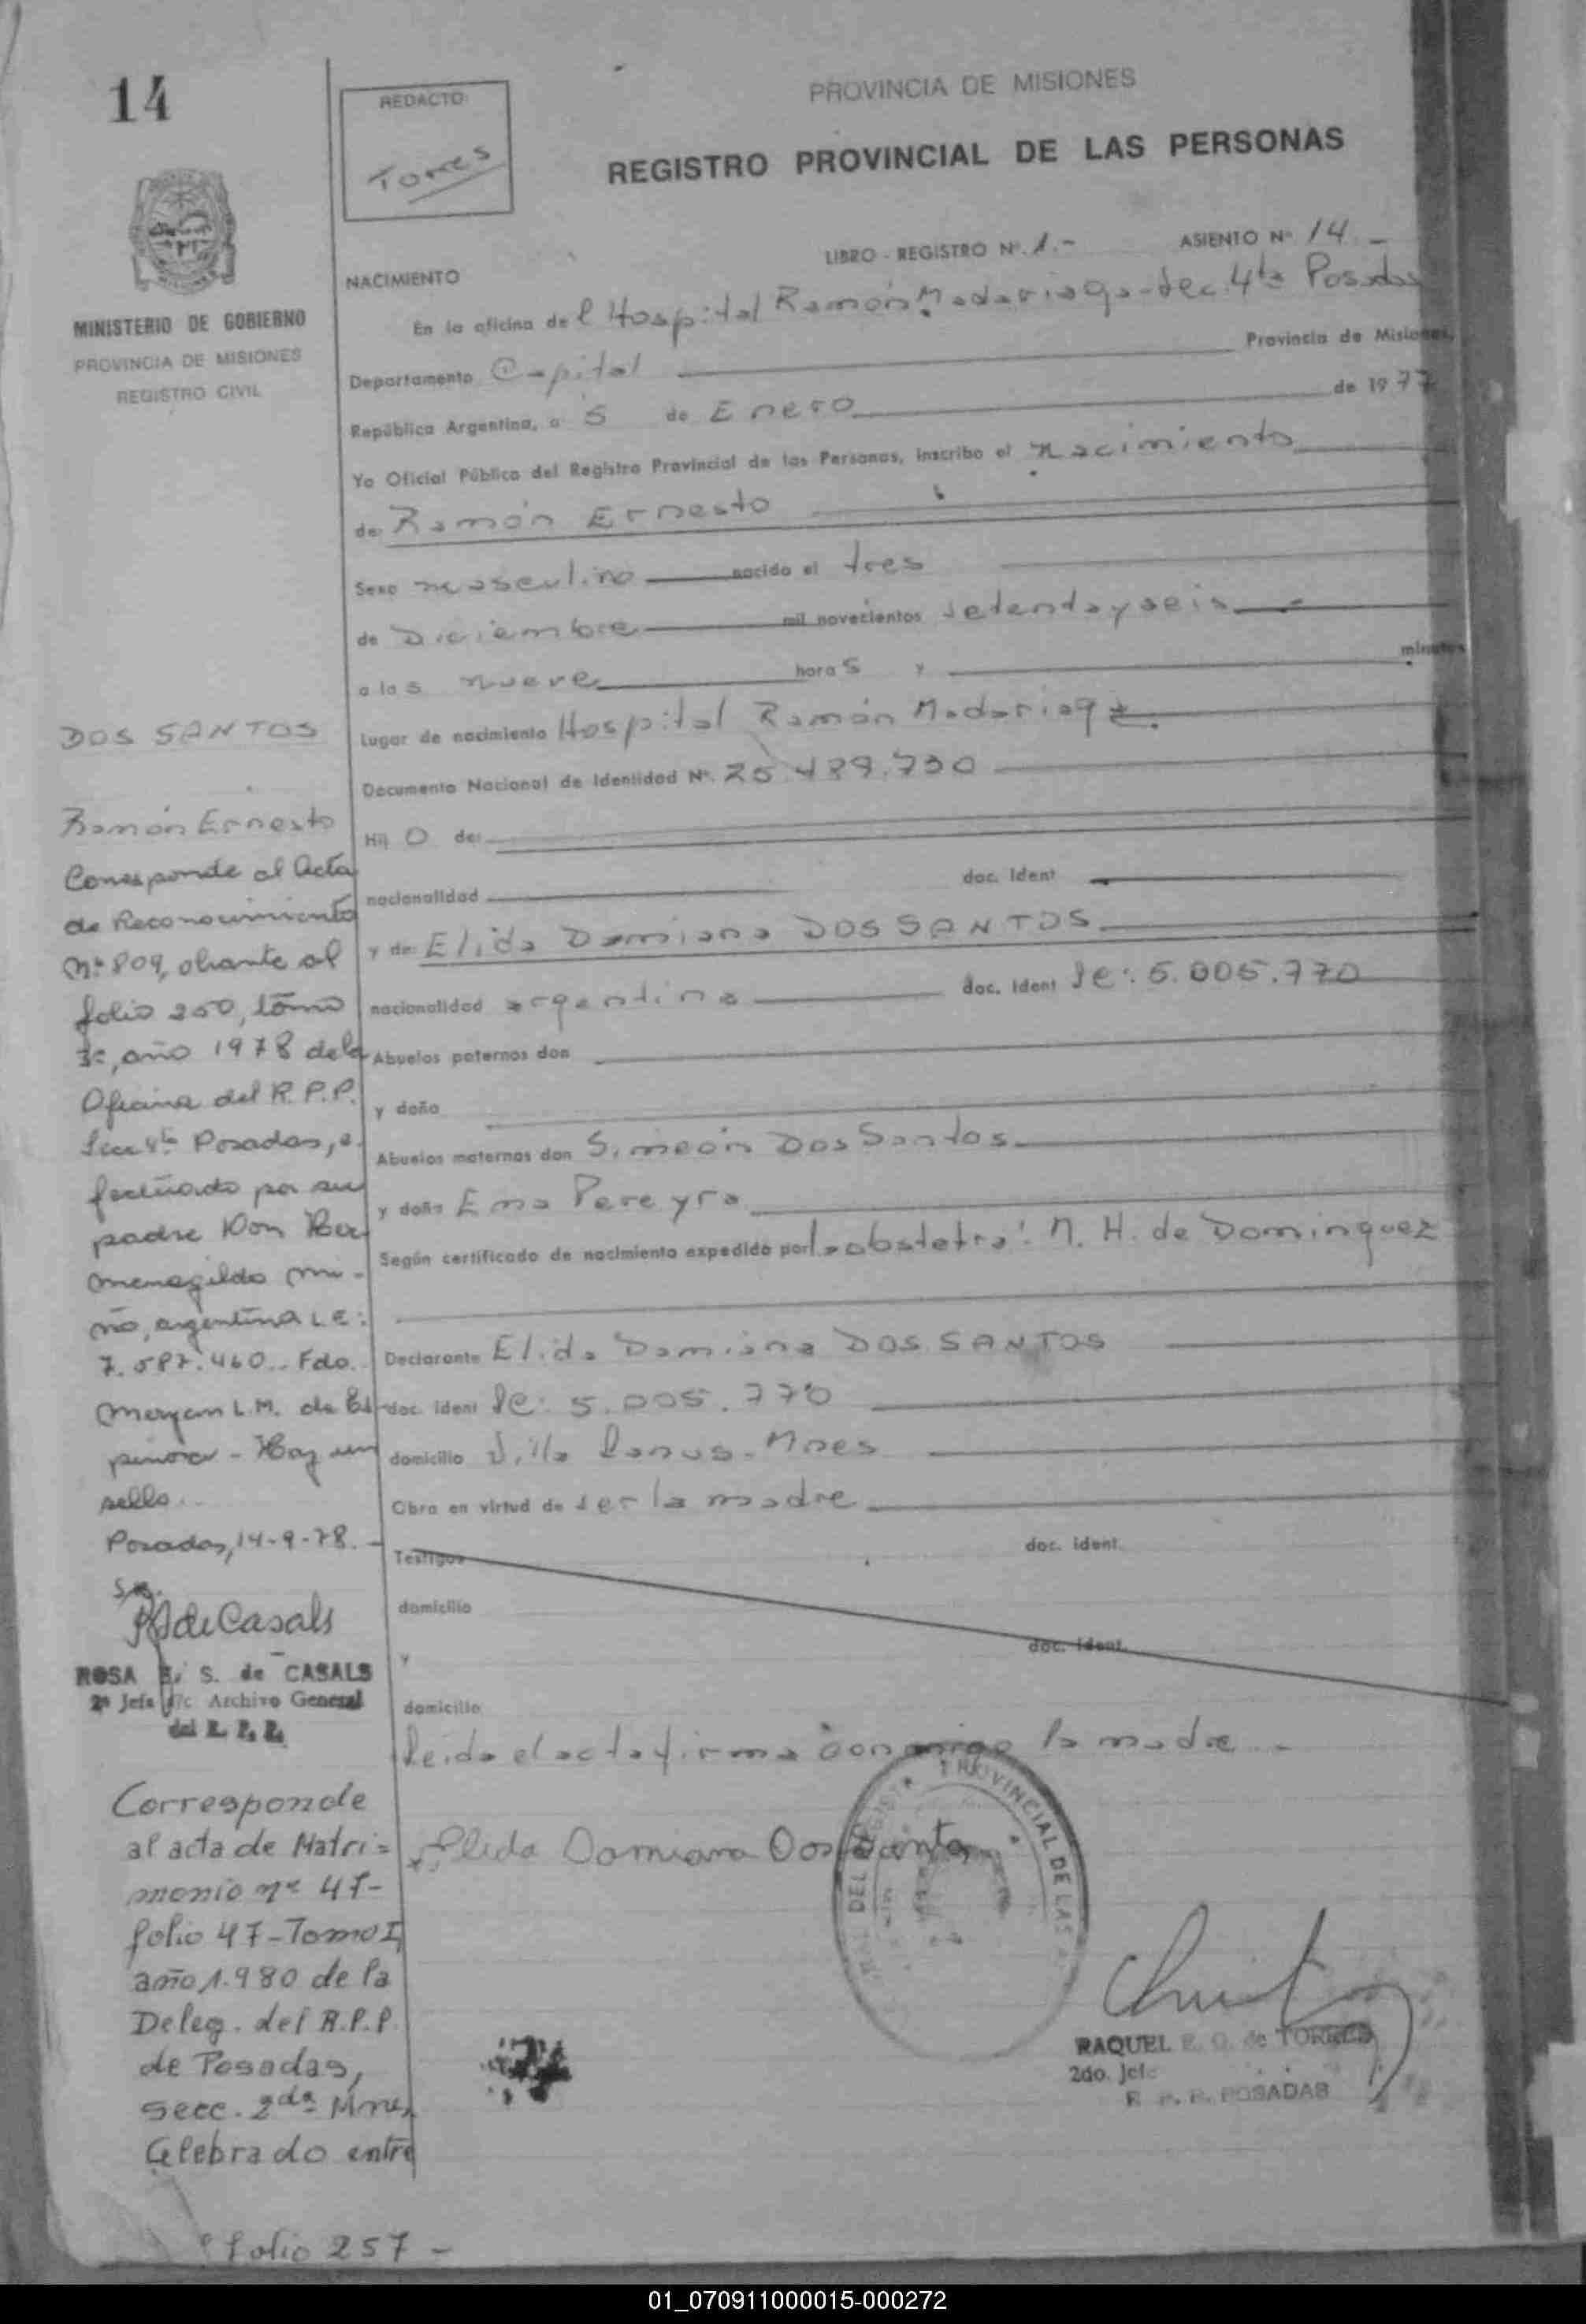 14
REDACTO:
Torres
PROVINCIA DE MISIONES
REGISTRO PROVINCIAL DE LAS PERSONAS
LIBRO - REGISTRO Nº. 1.-
ASIENTO Nº 14 -
NACIMIENTO
MINISTERIO DE GOBIERNO
PROVINCIA DE MISIONES
REGISTRO CIVIL
En la oficina del Hospital Ramón Madariaga - Sec. 4ta Posadas
Departamento Capital Provincia de Misiones,
República Argentina, a 5 de Enero de 1977
Yo Oficial Público del Registro Provincial de las Personas, inscribo el nacimiento
de: Ramón Ernesto
Sexo masculino nacido el tres
de Diciembre mil novecientos setenta y seis
a las nueve horas y minutos
Lugar de nacimiento Hospital Ramón Madariaga.
Documento Nacional de Identidad Nº. 25.489.730
Hijo de:
nacionalidad doc. Ident
y de: Elida Damiana DOS SANTOS
nacionalidad argentina doc. Ident Lc: 5.005.770
Abuelos paternos don
y doña
Abuelos maternos don Simeón Dos Santos
y doña Ema Pereyra
Según certificado de nacimiento expedido por la obstetra: N. H. de Dominguez
Declarante Elida Damiana DOS SANTOS
doc. ident Lc: 5.005.770
domicilio Villa Lanus - Mnes
Obra en virtud de ser la madre
Testigos doc. ident.
domicilio
y doc. ident.
domicilio
Leida el acta firma conmigo la madre -
Elida Damiana Dos Santo
PROVINCIAL DE LAS
RAQUEL E. G. de TORRES
2do. Jefe
R. P. P. POSADAS
DOS SANTOS
Ramón Ernesto
Corresponde al Acta
de Reconocimiento
Nº 809, obrante al
folio 250, tomo
3º, año 1978 de la
Oficina del R.P.P.
Secc 4ta Posadas, e-
fectuado por su
padre Don Her
menegildo Mi-
ño, argentina L E:
7.587.460.. Fdo.
Meryam L.M. de Es
pinoza - Hay un
sello..
Posadas, 14-9-78. -
RS de Casals
ROSA E. S. de CASALS
2ª Jefa a/c Archivo General
del R. P. P.
Corresponde
al acta de Matri=
monio nº 47-
folio 47-Tomo I
año 1.980 de la
Deleg. del R.P.P.
de Posadas,
secc. 2da Mnes,
Celebrado entre
folio 257 -
01_070911000015-000272